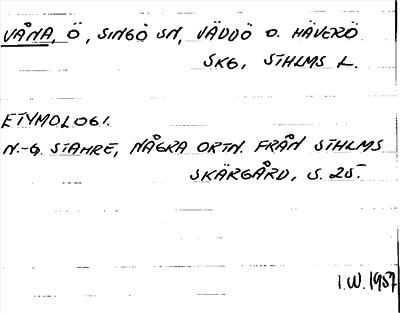 VÅNA, Ö, SINGÖ SN, VÄDDÖ O. HÄVERÖ
SKG, STHLMS L.
ETYMOLOGI.
N.-G. STAHRE, NÅGRA ORTN. FRÅN STHLMS
SKÄRGÅRD, S. 25.
I.W. 1957